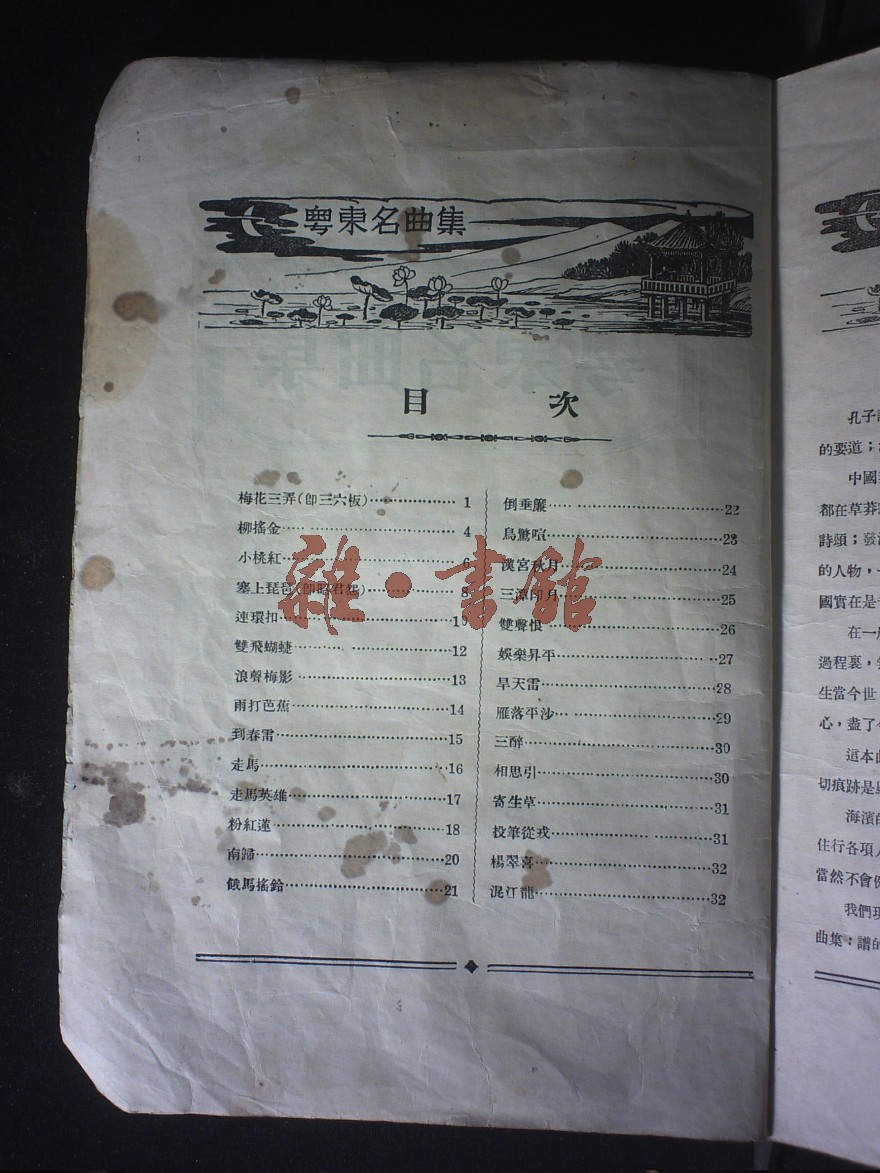 粤東名曲集
目 次
梅花三弄(卽三六板)·················· 1
柳搖金··· ·················· 4
小桃紅·················· 6
塞上琵琶(卽昭君怨)·················· 8
連環扣·················· 10
雙飛蝴蝶·················· 12
浪聲梅影 ·················· 13
雨打芭蕉·················· 14
到春雷·················· 15
走馬·················· 16
走馬英雄·················· 17
粉紅蓮·················· 18
南歸·················· 20
餓馬搖鈴·················· 21
倒垂簾··· ·················· 22
鳥驚喧·················· 23
漢宮秋月·················· 24
三潭印月·················· 25
雙聲恨·················· 26
娛樂昇平·················· 27
旱天雷·················· 28
雁落平沙·················· 29
三醉·················· 30
相思引·················· 30
寄生草·················· 31
投筆從戎·················· 31
楊翠喜·················· 32
混江龍·················· 32
雜·書館
孔子
的要道;
中國
都在草莽
詩頭;發
的人物,
國實在是
在一
過程裏,
生當今世
心,盡了
這本曲
切痕跡是
海濱的
住行各項
當然不會
我們現
曲集;譜的